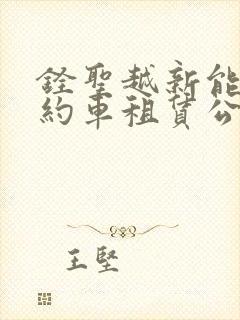 銓聖越新能
約車租賃公
王堅